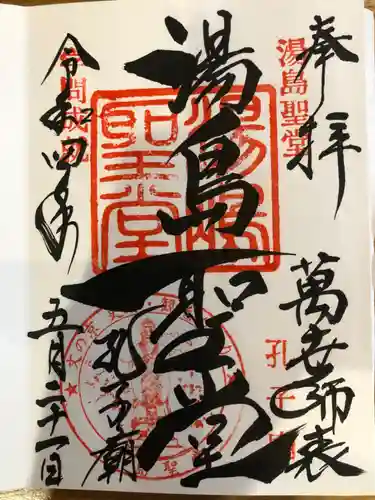 奉拝
湯島聖堂
萬世師表
孔子廟
湯島聖堂
湯島聖堂
孔子廟
学問成就
令和四年
五月二十一日